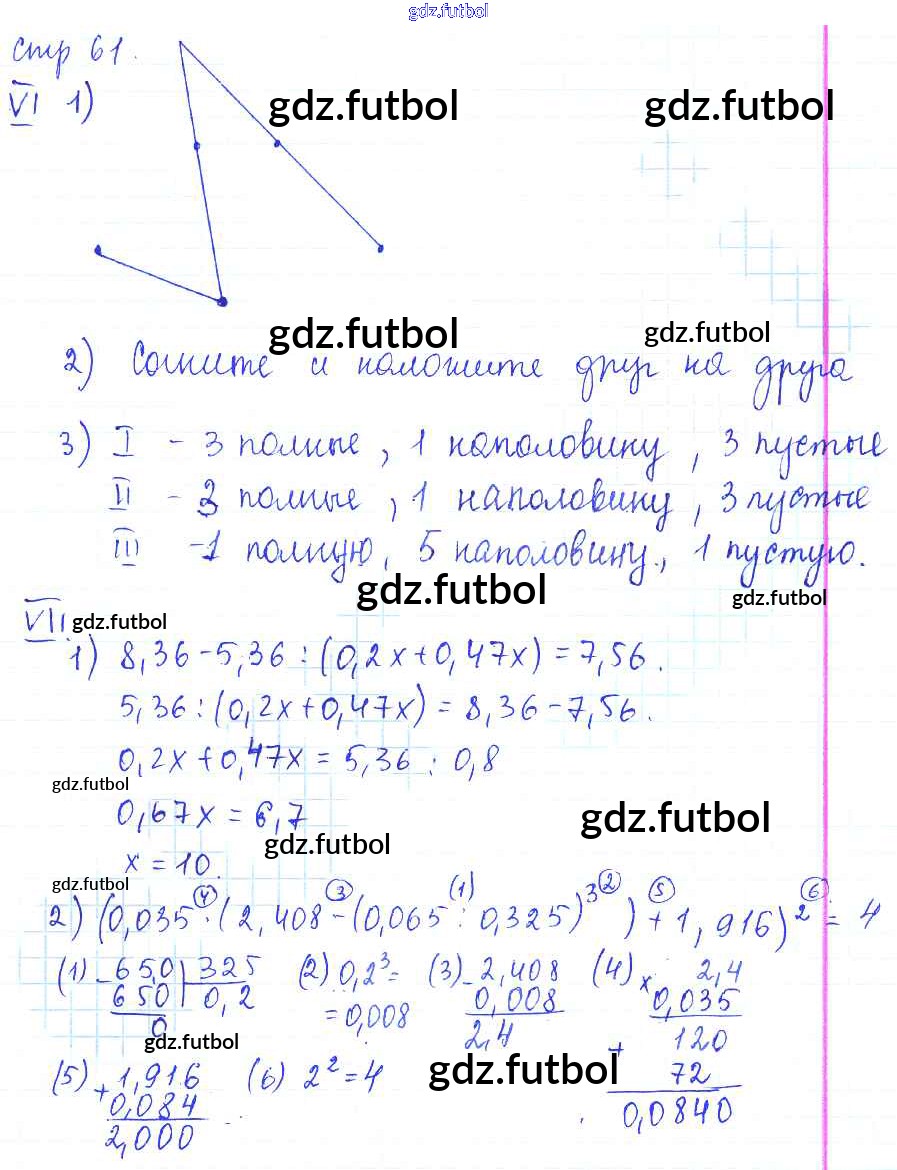 gdz.futbol
стр 61.
VI 1)
gdz.futbol gdz.futbol
gdz.futbol gdz.futbol
2) Сомните и наложите друг на друга
3) I - 3 полные, 1 наполовину, 3 пустые
II - 3 полные, 1 наполовину, 3 пустые
III - 1 полную, 5 наполовину, 1 пустую.
gdz.futbol gdz.futbol
VII gdz.futbol
1) 8,36 - 5,36 : (0,2x + 0,47x) = 7,56.
5,36 : (0,2x + 0,47x) = 8,36 - 7,56.
0,2x + 0,47x = 5,36 : 0,8
gdz.futbol
0,67x = 6,7
gdz.futbol gdz.futbol
x = 10.
gdz.futbol
(4) (3) (1) (2) (5) (6)
2) (0,035 · (2,408 - (0,065 : 0,325)³) + 1,916)² = 4
(1) - 65,0 | 325 (2) 0,2³ = (3) - 2,408 (4) x 2,4
650 | 0,2 = 0,008 0,008 0,035
0 2,4 + 120
gdz.futbol
(5) + 1,916 (6) 2² = 4 gdz.futbol 72
0,084 0,0840
2,000